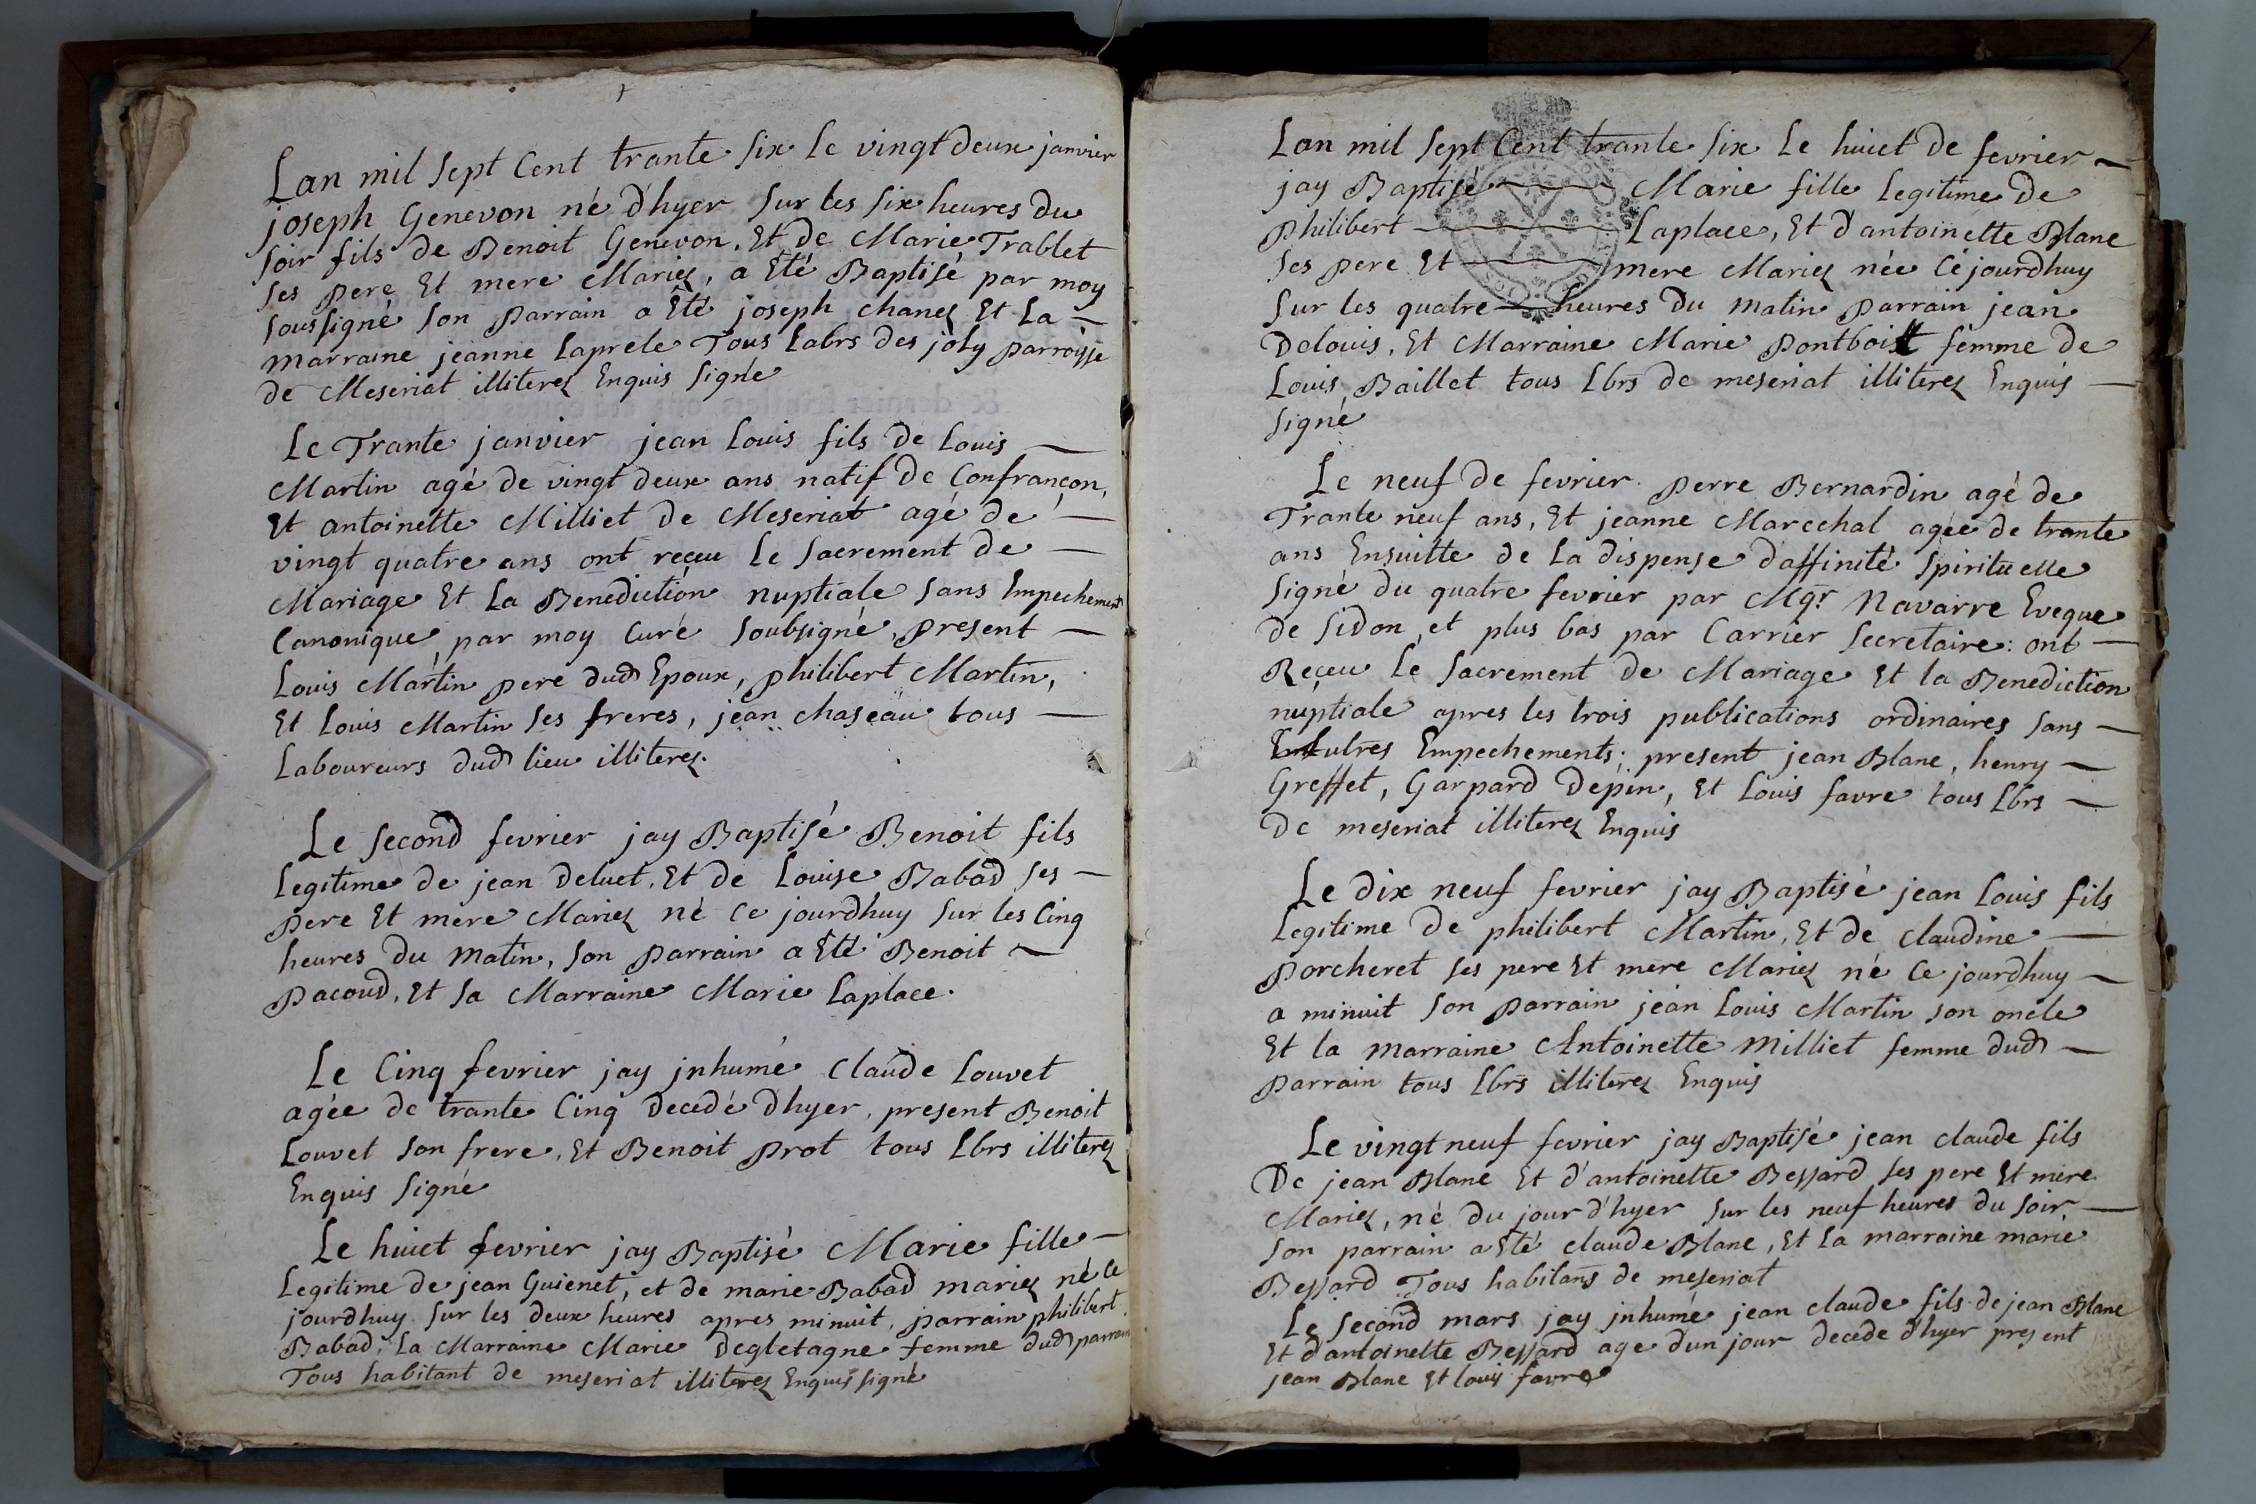 Lan mil sept Cent trante six le vingt deux janvier
joseph Genevon né d'hyer sur les six heures du
soir fils de Benoit Genevon, Et de Marie Trablet
ses pere Et mere Mariez, a Eté Baptisé par moy
soussigné son parrain a Eté joseph chanez Et La
marraine jeanne Laprele Tous Labrs des joly parroisse
de Meseriat illiterez Enquis signé
Le Trante janvier jean Louis fils de Louis
Martin agé de vingt deux ans natif de Confrançon,
Et antoinette Milliet de Meseriat agé de
vingt quatre ans ont reçeu le sacrement de
Mariage Et La Benediction nuptiale sans Empechement
Canonique, par moy Curé soubsigné, present
Louis Martin pere dud Epoux, philibert Martin,
Et Louis Martin ses freres, jean chaseau tous
Laboureurs dud lieu illiterez.
Le second fevrier jay Baptisé Benoit fils
Legitime de jean deluet, Et de Louise Babad ses
pere Et mere Mariez né Ce jourdhuy sur les Cinq
heures du matin, son parrain a Eté Benoit
pacoud, Et sa Marraine Marie Laplace.
Le Cinq fevrier jay jnhumé Claude Louvet
agée de trante Cinq decedé d'hyer, present Benoit
Louvet son frere, Et Benoit prot tous Lbrs illiterez
Enquis signé
Le huict fevrier jay Baptisé Marie fille
Legitime de jean Guienet, et de marie Babad mariez né Ce
jourdhuy sur les deux heures apres minuit, parrain philibert
Babad, La Marraine Marie degletagne femme dud parrain
Tous habitant de meseriat illiterez Enquis signé
Lan mil sept Cent trante six Le huict de fevrier
jay Baptisé Marie fille Legitime de
philibert Laplace, Et d'antoinette Blanc
ses pere Et mere Mariez née Cejourdhuy
sur les quatre heures du matin parrain jean
Delouis, Et Marraine Marie pontboist femme de
Louis Baillet tous Lbrs de meseriat illiterez Enquis
signé
Le neuf de fevrier perre Bernardin agé de
Trante neuf ans, Et jeanne Marcehal agée de trante
ans Ensuitte de la dispense d'affinité spirituelle
signé du quatre fevrier par Mgr Navarre Eveque
de sidon, et plus bas par Carrier secretaire: ont
Reçeu Le sacrement de Mariage Et la Benediction
nuptiale apres les trois publications ordinaires sans
Empechements; present jean Blanc, henry
Greffet, Garpard Depin, Et Louis favre tous Lbrs
de meseriat illiterez Enquis
Le dix neuf fevrier jay Baptisé jean Louis fils
Legitime de philibert Martin, Et de claudine
porcheret ses pere Et mere Mariez né Ce jourdhuy
a minuit son parrain jean Louis Martin son oncle
Et la marraine Antoinette Milliet femme dud
parrain tous Lbrs illiterez Enquis
Le vingt neuf fevrier jay Baptisé jean claude fils
De jean Blanc Et d'antoinette Bessard ses pere Et mere
Mariez, né du jour d'hyer sur les neuf heures du soir
son parrain a Eté claude Blanc, Et La marraine marie
Bessard Tous habitans de meseriat
Le second mars jay jnhumé jean claude fils de jean Blanc
Et d'antoinette Bessard age dun jour decede d'hyer present
jean Blanc Et louis favre